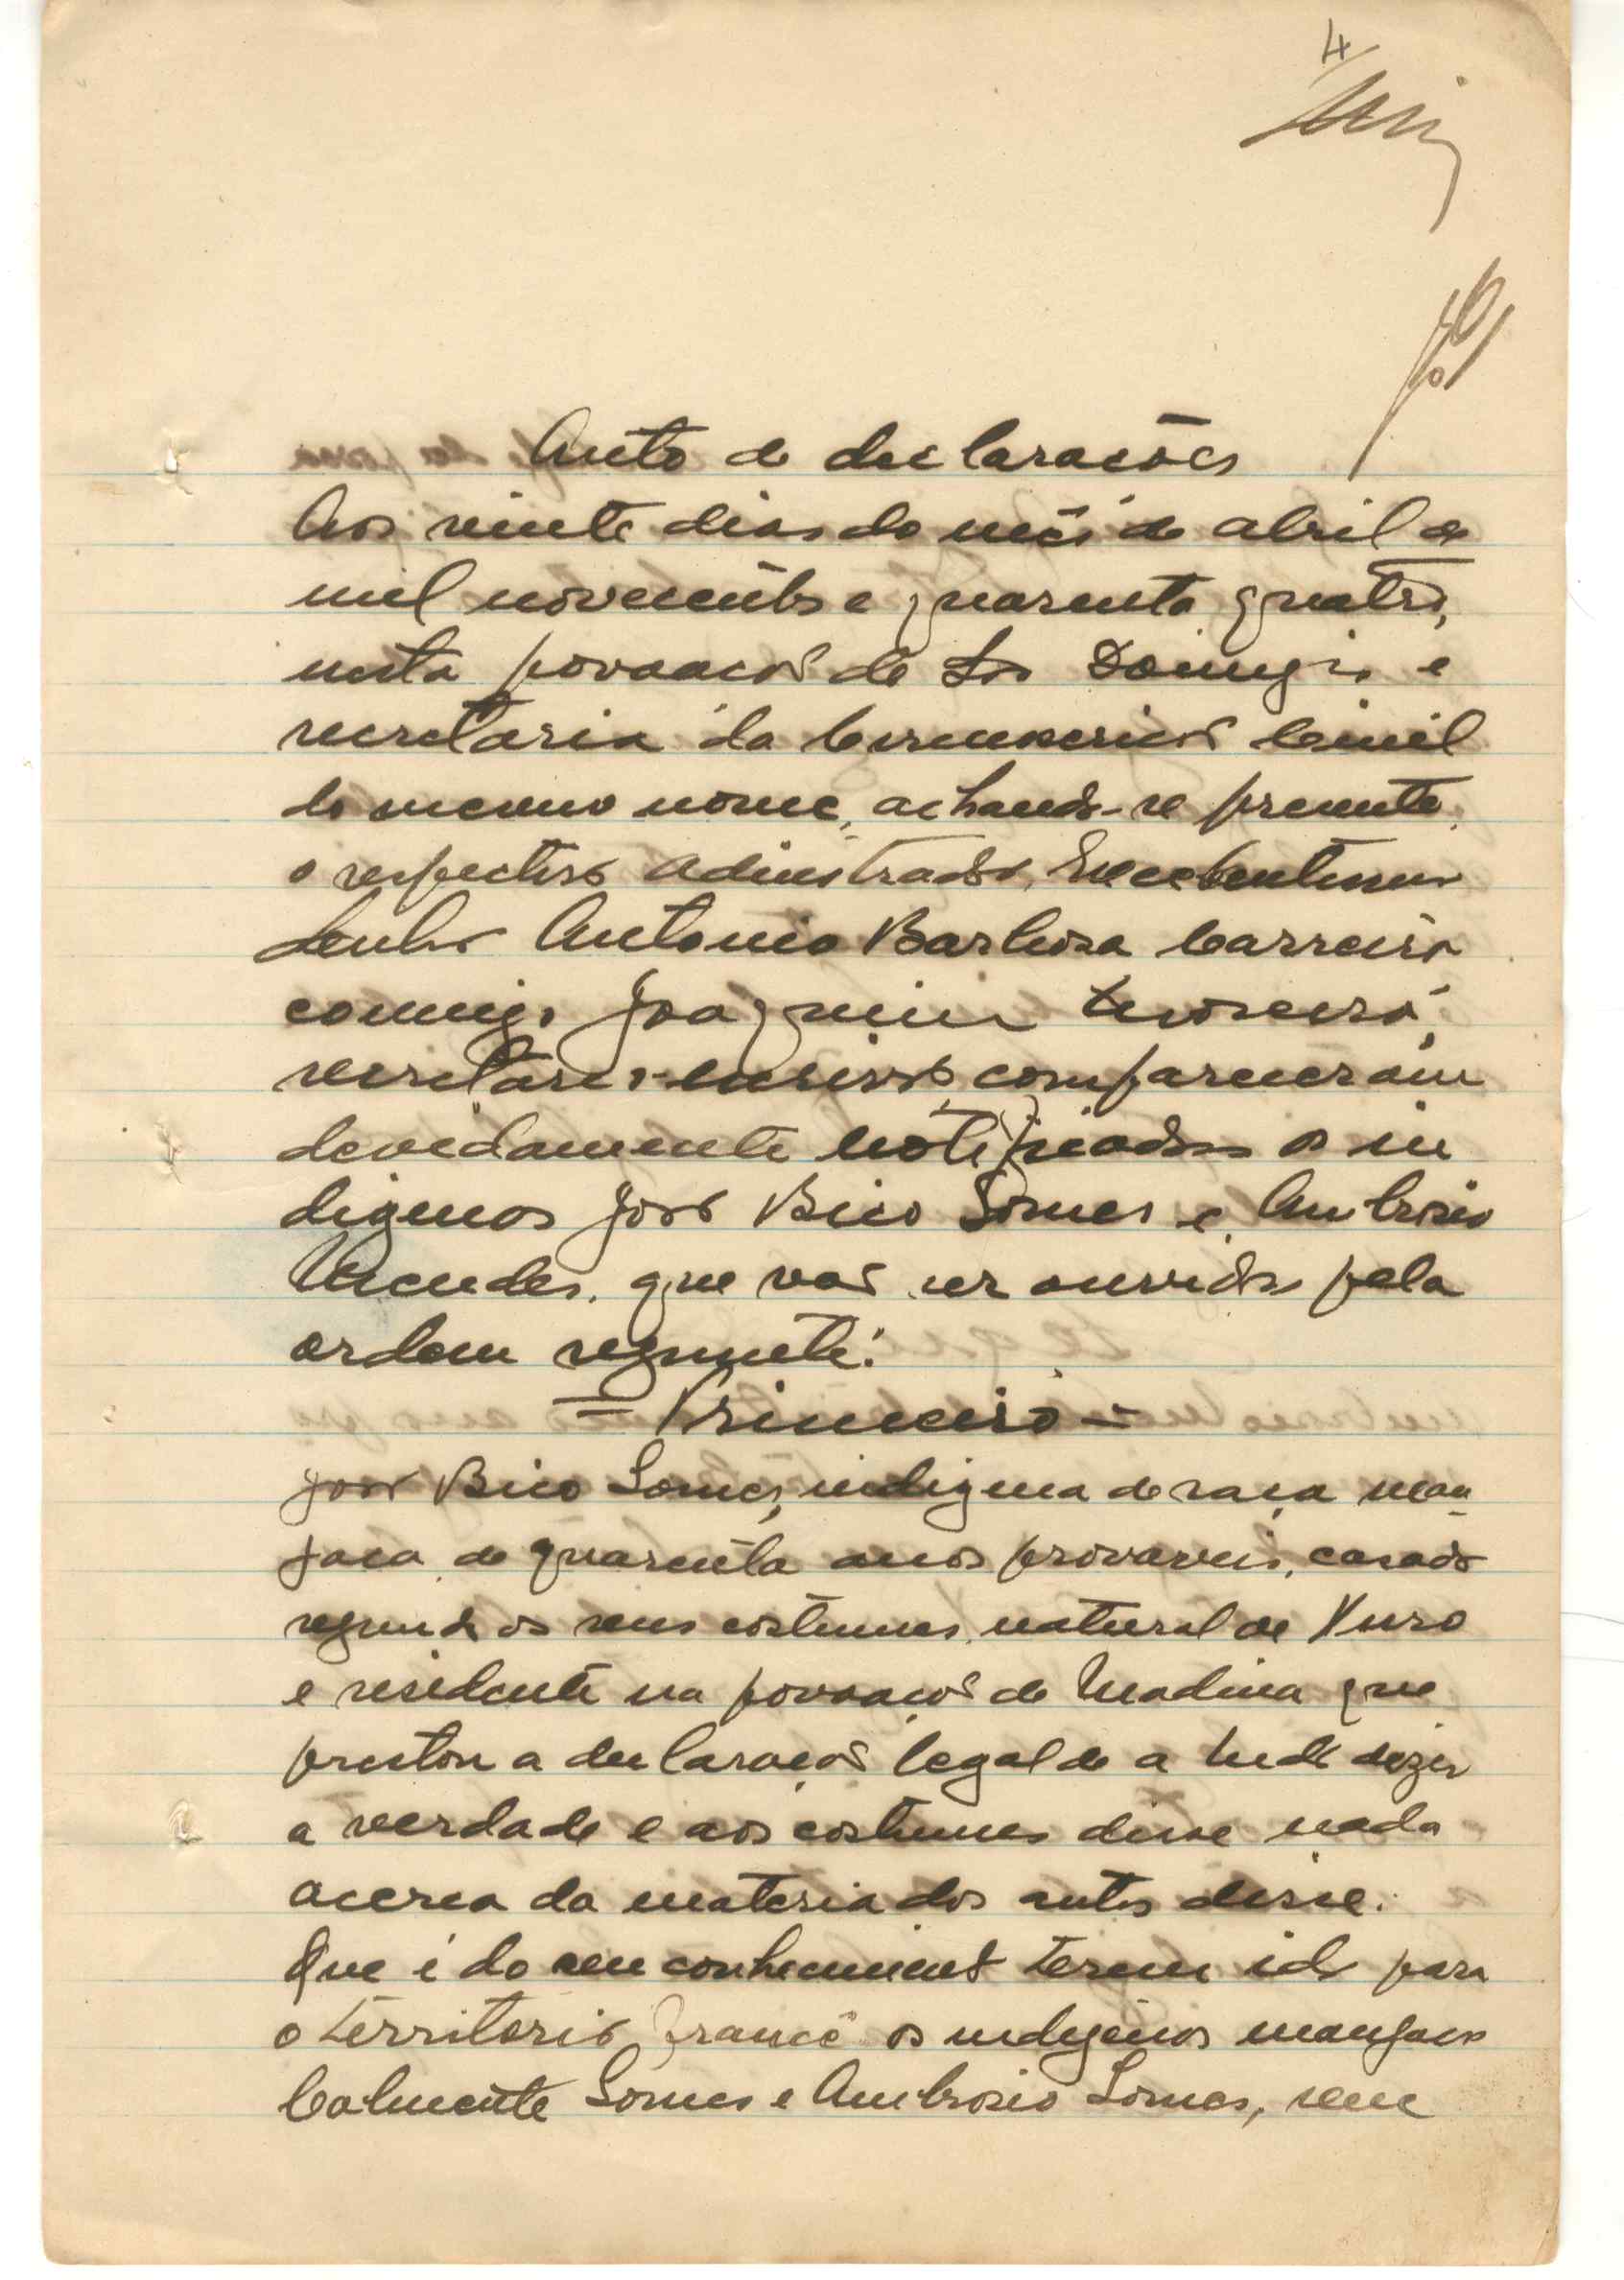 4
Auto de declarações
Aos vinte dias do mês de abril de
mil novecentos e quarenta quatro,
nesta povoação de São Domingos e
secretaria da Circunscrição Civil
do mesmo nome, achando-se presente
o respectivo Administrador, Excelentissimo
Senhor António Barbosa Carreira
comigo Joaquim Moreira,
secretario-escrivão compareceram
devidamente notificados os in
digenas João Bico Gomes e Ambrosio
Mendes, que vão ser ouvidos pela
ordem seguinte:
= Primeiro =
João Bico Gomes, indigena de raça man
jaca, de quarenta anos provaveis, casado
segundo os seus costumes, natural de
e residente na povoação de Madina que
prestou a declaração legal de a tudo dizer
a verdade e aos costumes disse nada
acerca da materia dos autos disse:
Que é do seu conhecimento terem ido para
o territorio francê os indigenas manjacos
Gomes e Ambrosio Gomes, sem